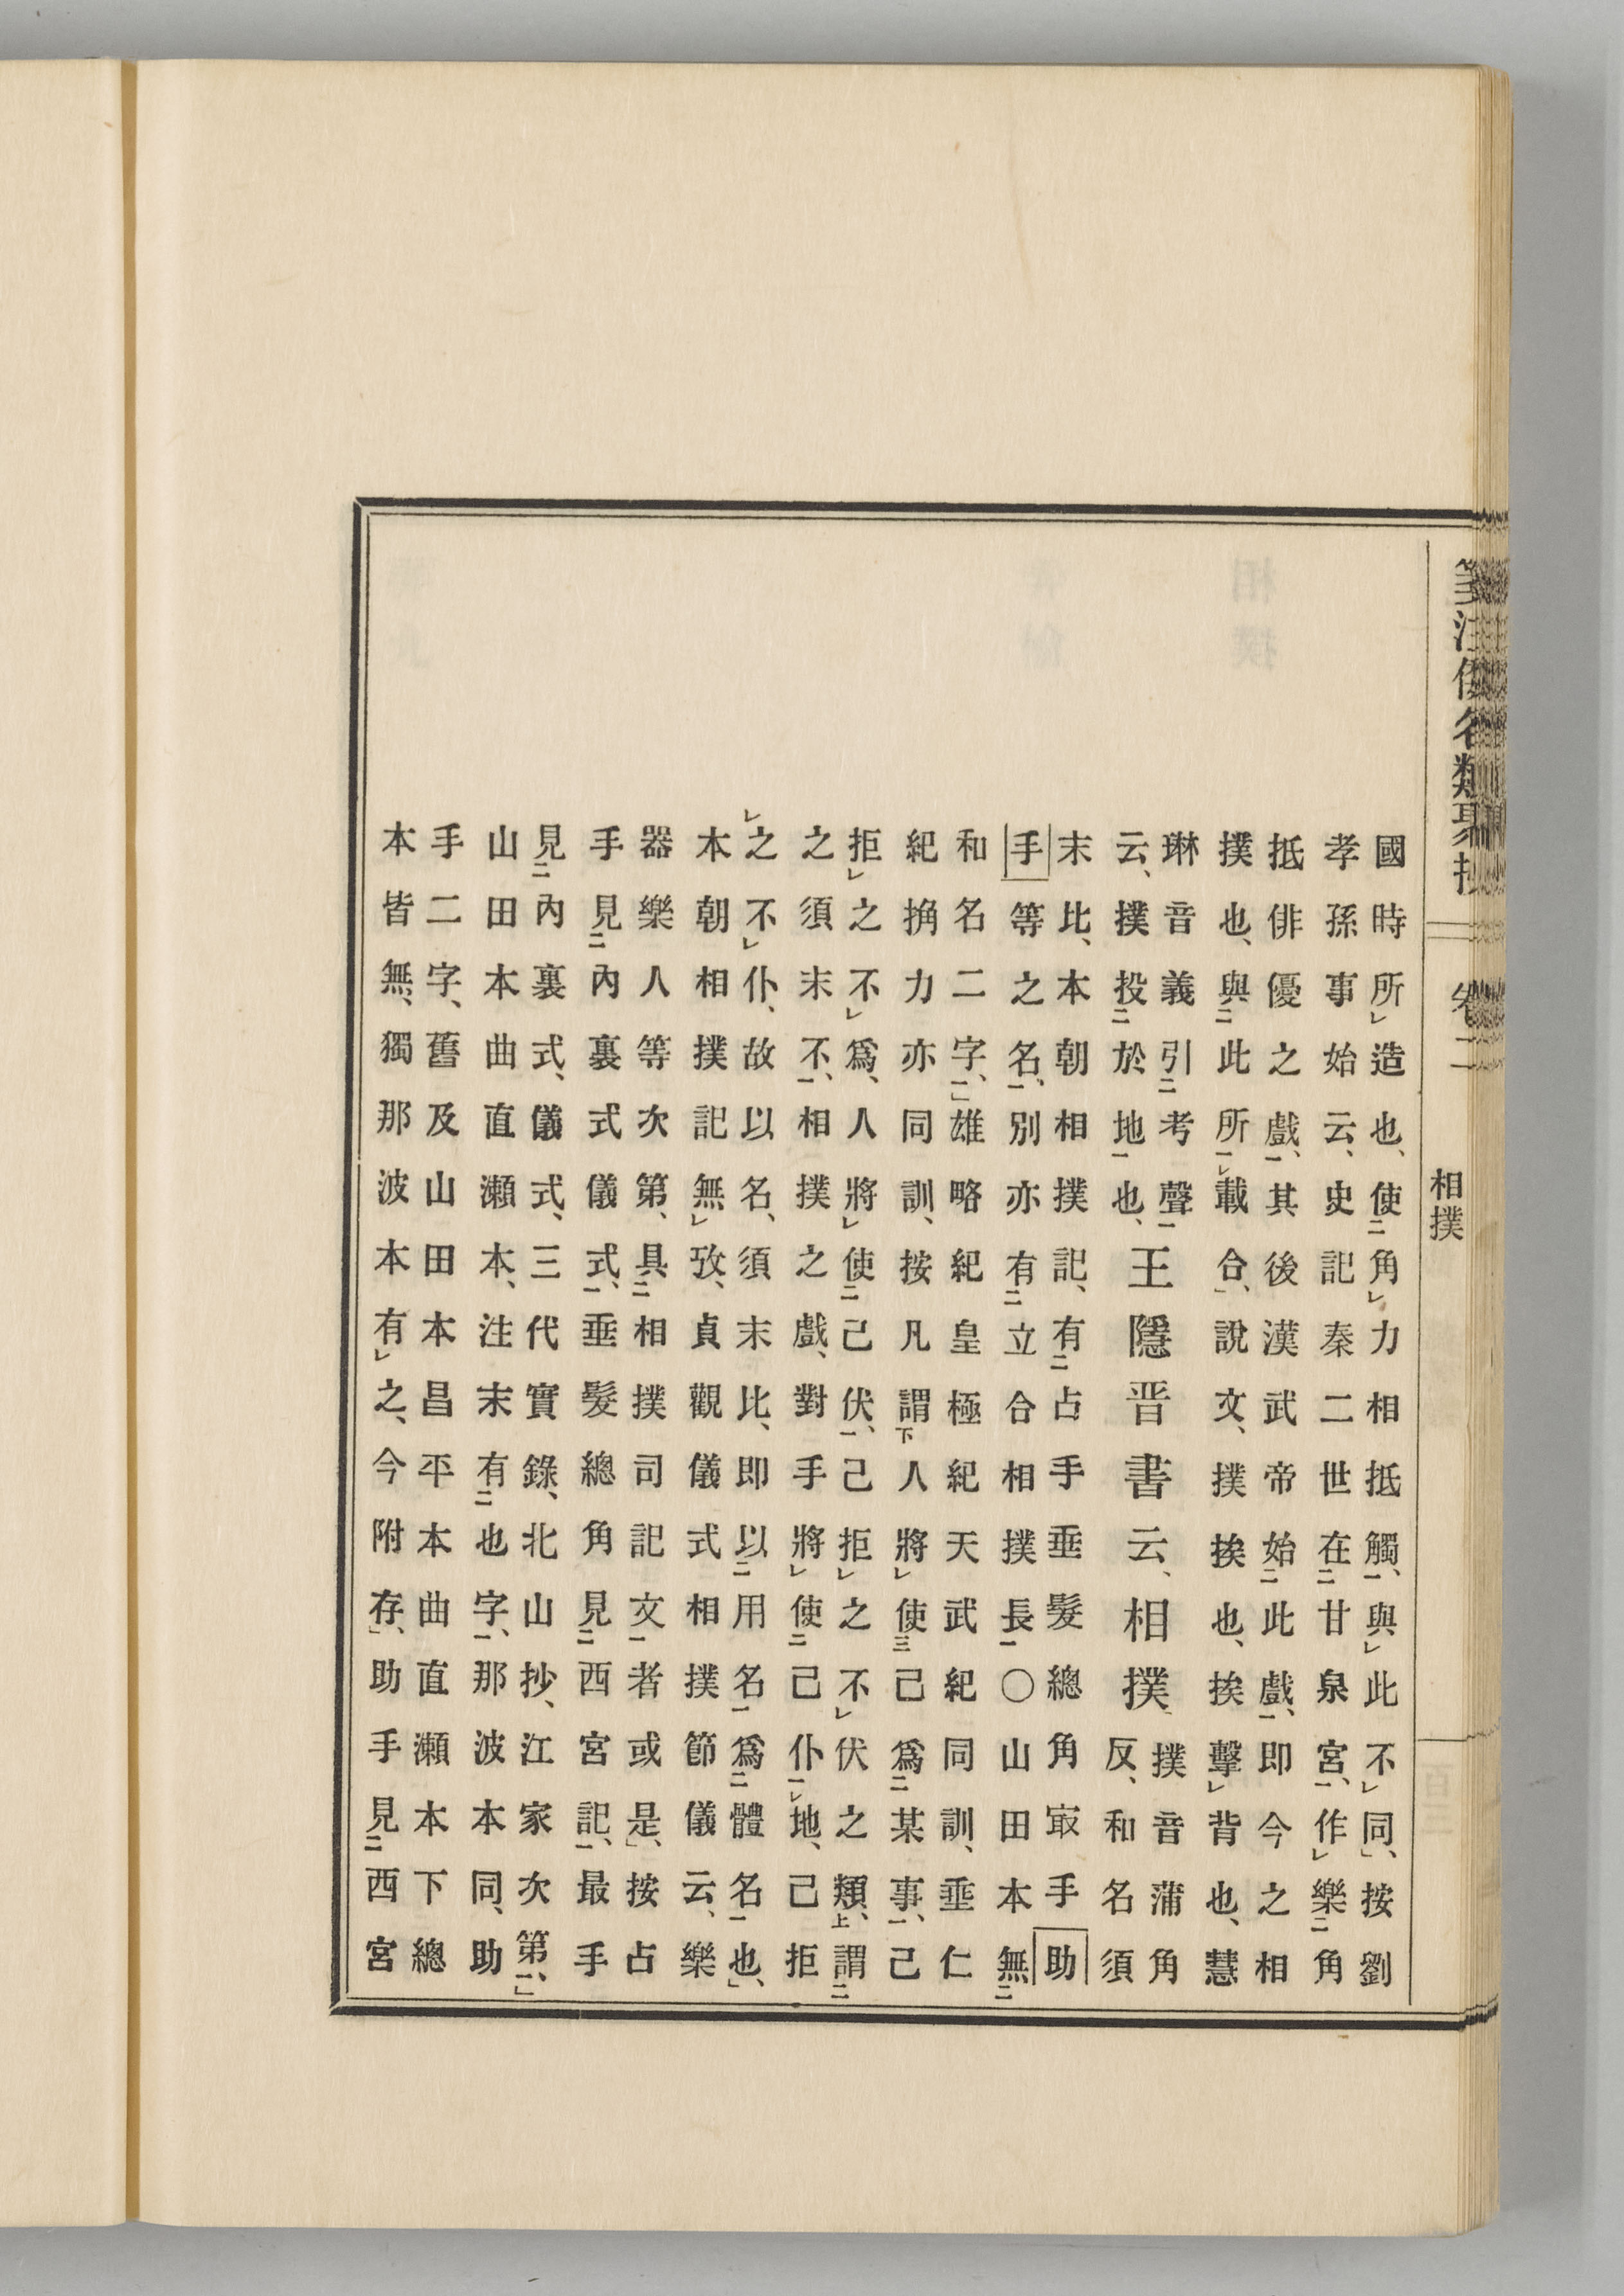 箋注倭名類聚抄 卷二 相撲
國時所㆑造也、使㆓角㆑力相抵觸㆒、與㆑此不㆑同、」按劉
孝孫事始云、史記秦二世在㆓甘泉宮㆒、作㆑樂㆓角
抵俳優之戲㆒、其後漢武帝始㆓此戲㆒、即今之相
撲也、與㆓此所㆒㆑載合、」說文、撲挨也、挨擊㆑背也、慧
琳音義引㆓考聲㆒
云、撲投㆓於地㆒也、
王隱晋書云、相撲
撲音蒲角
反、和名須
末比、本朝相撲記、有㆓占手垂髮總角㝡手助
手等之名㆒、別亦有㆓立合相撲長㆒○山田本無㆓
和名二字㆒、」雄略紀皇極紀天武紀同訓、垂仁
紀捔力亦同訓、按凡謂㆘人將㆑使㆔己爲㆓某事㆒、己
拒㆑之不㆑爲、人將㆑使㆓己伏㆒、己拒㆑之不㆑伏之類㆖、謂㆓
之須末不㆒、相撲之戲、對手將㆑使㆓己仆㆒㆑地、己拒
㆑之不㆑仆、故以名、須末比、即以㆓用名㆒爲㆓體名㆒也、」
本朝相撲記無㆑攷、貞觀儀式相撲節儀云、樂
器樂人等次第、具㆓相撲司記文㆒者或是、」按占
手見㆓內裏式儀式㆒、垂髮總角見㆓西宮記㆒、最手
見㆓內裏式、儀式、三代實錄、北山抄、江家次第㆒、」
山田本曲直瀨本、注末有㆓也字㆒、那波本同、助
手二字、舊及山田本昌平本曲直瀨本下總
本皆無、獨那波本有㆑之、今附存、」助手見㆓西宮